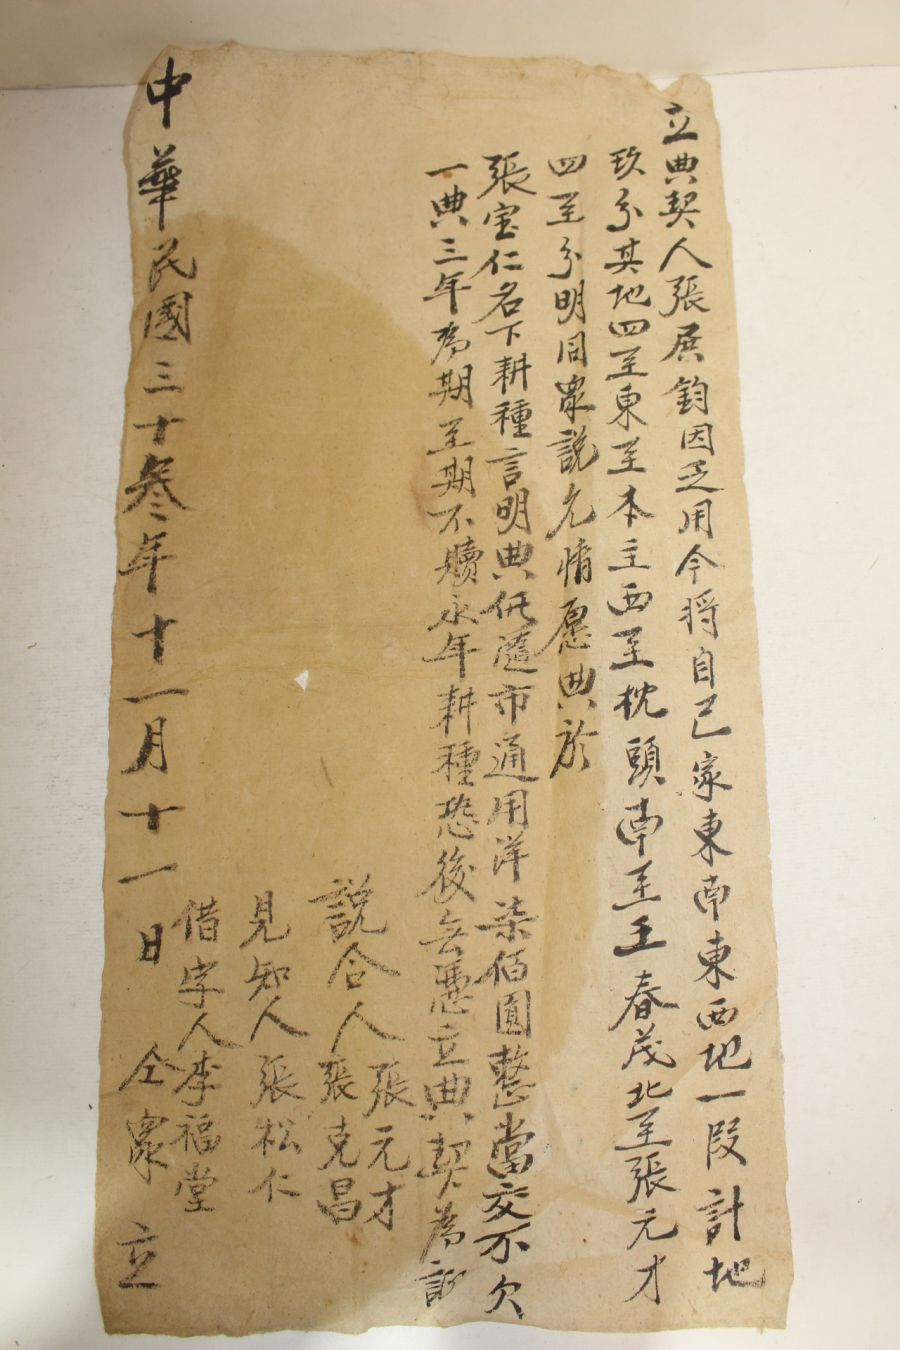 立典契人張展鈞因乏用今將自己家東南東西地一段計地
玖分其地四至東至本主西至枕頭南至王春茂北至張元才
四至分明同衆説允情愿典於
張宝仁名下耕種言明典價隨市通用洋柒佰圓整當交不欠
一典三年為期至期不贖永年耕種恐後無憑立典契為証
説合人張元才
張克昌
見知人張松仁
借字人李福堂
中華民國三十叁年十一月十一日 仝衆 立